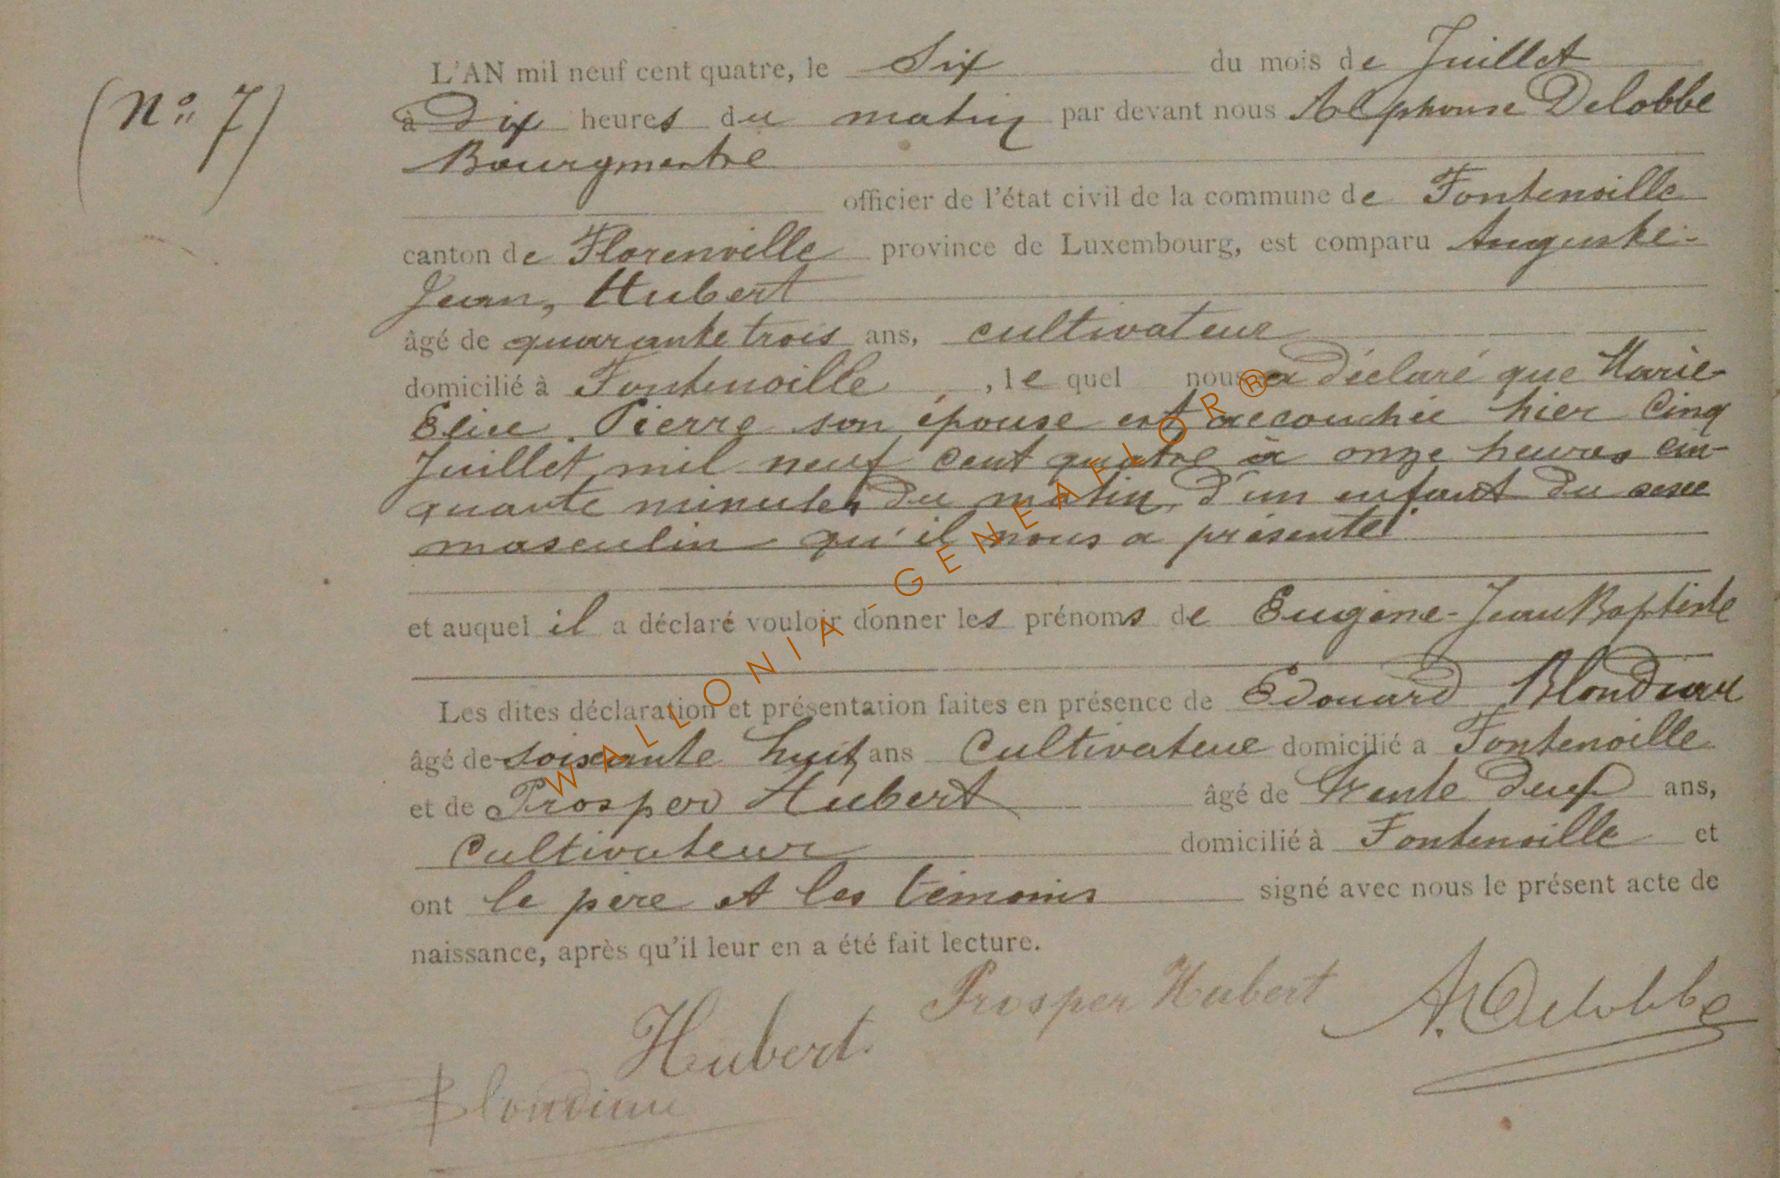 (N° 7)
L'AN mil neuf cent quatre, le Six du mois de Juillet
à Dix heures du matin par devant nous Alphonse Delobbe
Bourgmestre
officier de l'état civil de la commune de Fontenoille
canton de Florenville province de Luxembourg, est comparu Auguste-
Jean, Hubert
âgé de quarante trois ans, cultivateur
domicilié à Fontenoille, le quel nous a déclaré que Marie-
Elise Pierre son épouse est accouchée hier Cinq
Juillet mil neuf cent quatre à onze heures cin-
quante minutes du matin, d'un enfant du sexe
masculin qu'il nous a présenté
et auquel il a déclaré vouloir donner les prénoms de Eugène-Jean Baptiste
Les dites déclaration et présentation faites en présence de Edouard Blondiau
âgé de soixante huit ans Cultivateur domicilié a Fontenoille
et de Prosper Hubert âgé de trente deux ans,
Cultivateur domicilié à Fontenoille et
ont le père et les témoins signé avec nous le présent acte de
naissance, après qu'il leur en a été fait lecture.
Prosper Hubert A. Delobbe
Hubert.
Blondiau
WALLONIA-GENEAFLOR®